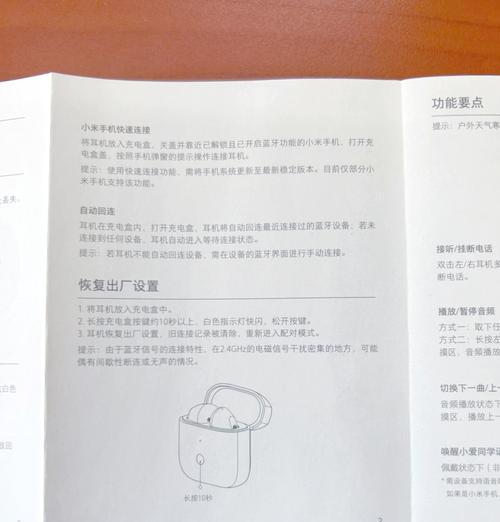 小米手机快速连接
将耳机放入充电盒,关盖并靠近已解锁且已开启蓝牙功能的小米手机,打开充
电盒盖,按照手机弹窗的提示操作连接耳机。
提示:使用快速连接功能,需将手机系统更新至最新稳定版本。目前仅部分小
米手机支持该功能。
自动回连
耳机在充电盒内,打开充电盒,耳机将自动回连最近连接过的蓝牙设备;若未
连接到任何设备,耳机自动进入等待连接状态。
提示:若耳机不能自动回连设备,需在设备的蓝牙界面进行手动连接。
恢复出厂设置
1. 将耳机放入充电盒中。
2. 长按充电盒按键约10秒以上,白色指示灯快闪,松开按键。
3. 耳机恢复出厂设置,旧连接记录被清除,重新进入配对模式。
提示:由于蓝牙信号的连接特性,在2.4GHz的电磁信号干扰密集的地方,可能
偶有间歇性断连或无声的情况。
长按10秒
丢失。
白色
功能要点
提示:户外天气寒
接听/挂断电话
双击左/右耳机多
断电话。
播放/暂停音频
方式一:取下任
方式二:长按左
摸区,音频播放
切换下一曲/上一
音频播放状态下
摸区,播放上一
唤醒小爱同学语
佩戴状态下(非
* 需设备支持语音
如果是小米手机,